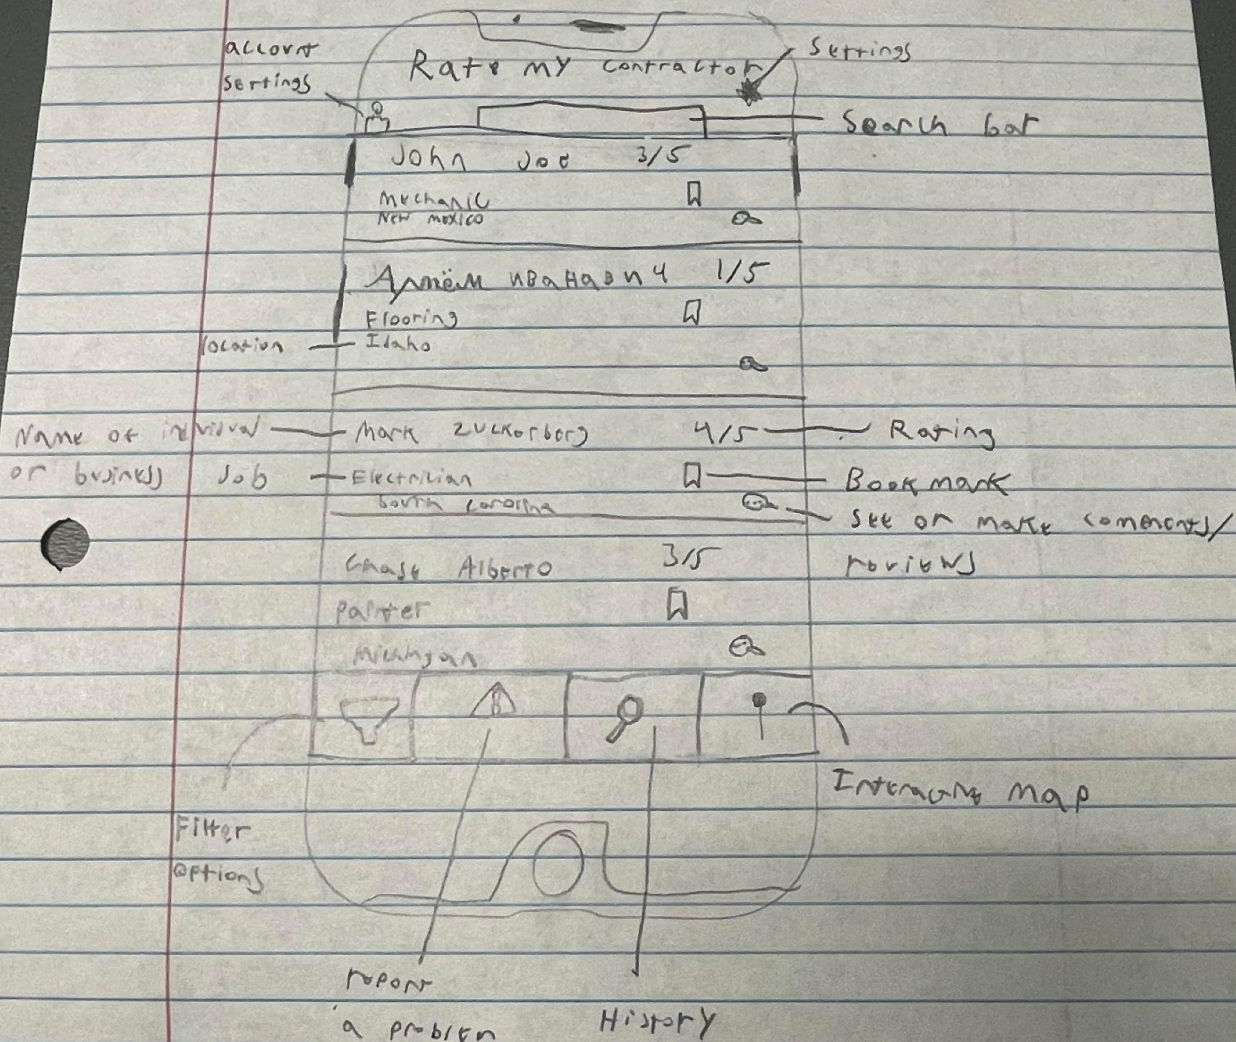 account
settings
Rate my contractor
Settings
Search bar
John Joe 3/5
Mechanic
New mexico
Артём иванавич 1/5
Flooring
location
Idaho
Name of
or business
Mark Zuckerberg 4/5
Rating
Job
Electritian
Bookmark
South Carolina
See or make coments/
reviews
Chase Alberto 3/5
painter
Michigan
Interactive Map
Filter
options
report
a problem
History